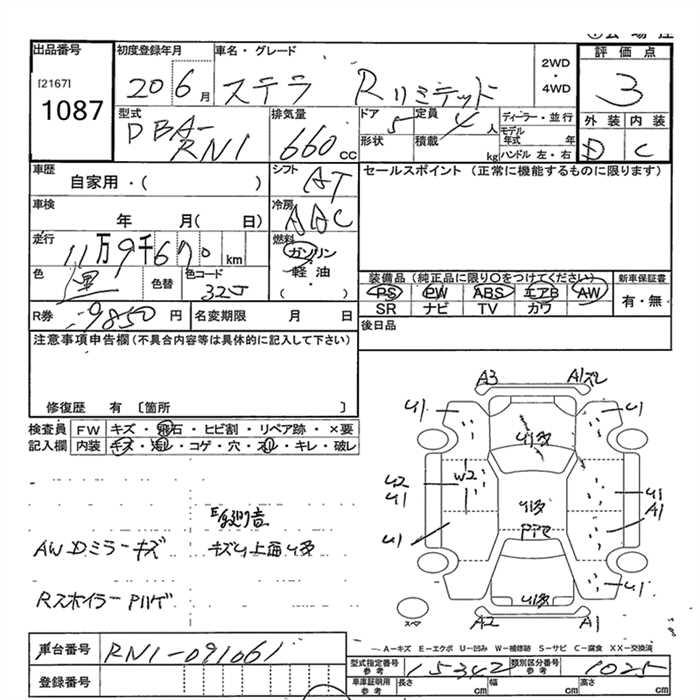 出品番号 初度登録年月 車名・グレード 2WD・4WD 評価点
[2167] 1087 20 6月 ステラ Rリミテッド 3
型式 DBA-RN1 排気量 660cc ドア 5 定員 4人 ディーラー・並行 外装 内装
形状 積載 kg モデル年式 年 ハンドル 左・右 D C
車歴 自家用・( ) シフト AT セールスポイント(正常に機能するものに限ります)
車検 年 月( 日) 冷房 AAC
走行 11万9千670km 燃料 ガソリン・軽油・( )
色 黒 色替 色コード 32J 装備品(純正品に限り○をつけてください) 新車保証書
PS PW ABS エアB AW 有・無
SR ナビ TV カワ
R券 9850円 名変期限 月 日 後日品
注意事項申告欄(不具合内容等は具体的に記入して下さい)
修復歴 有 〔箇所 〕
検査員 FW キズ・飛石・ヒビ割・リペア跡・×要
記入欄 内装 キズ・汚レ・コゲ・穴・スレ・キレ・破レ
AWDミラーキズ キズU上面U多
RスポイラーPハゲ
A3 A1
U1 U1
U多
U2 W2
U1 U多 U1
A1
U1
U多 U1
スペア A2 A1
A-キズ E-エクボ U-凹み W-補修跡 S-サビ C-腐食 XX-交換済
車台番号 RN1-091061
型式指定番号 参考 15342 類別区分番号 参考 1025
登録番号 車庫証明用 参考 長さ cm 幅 cm 高さ cm